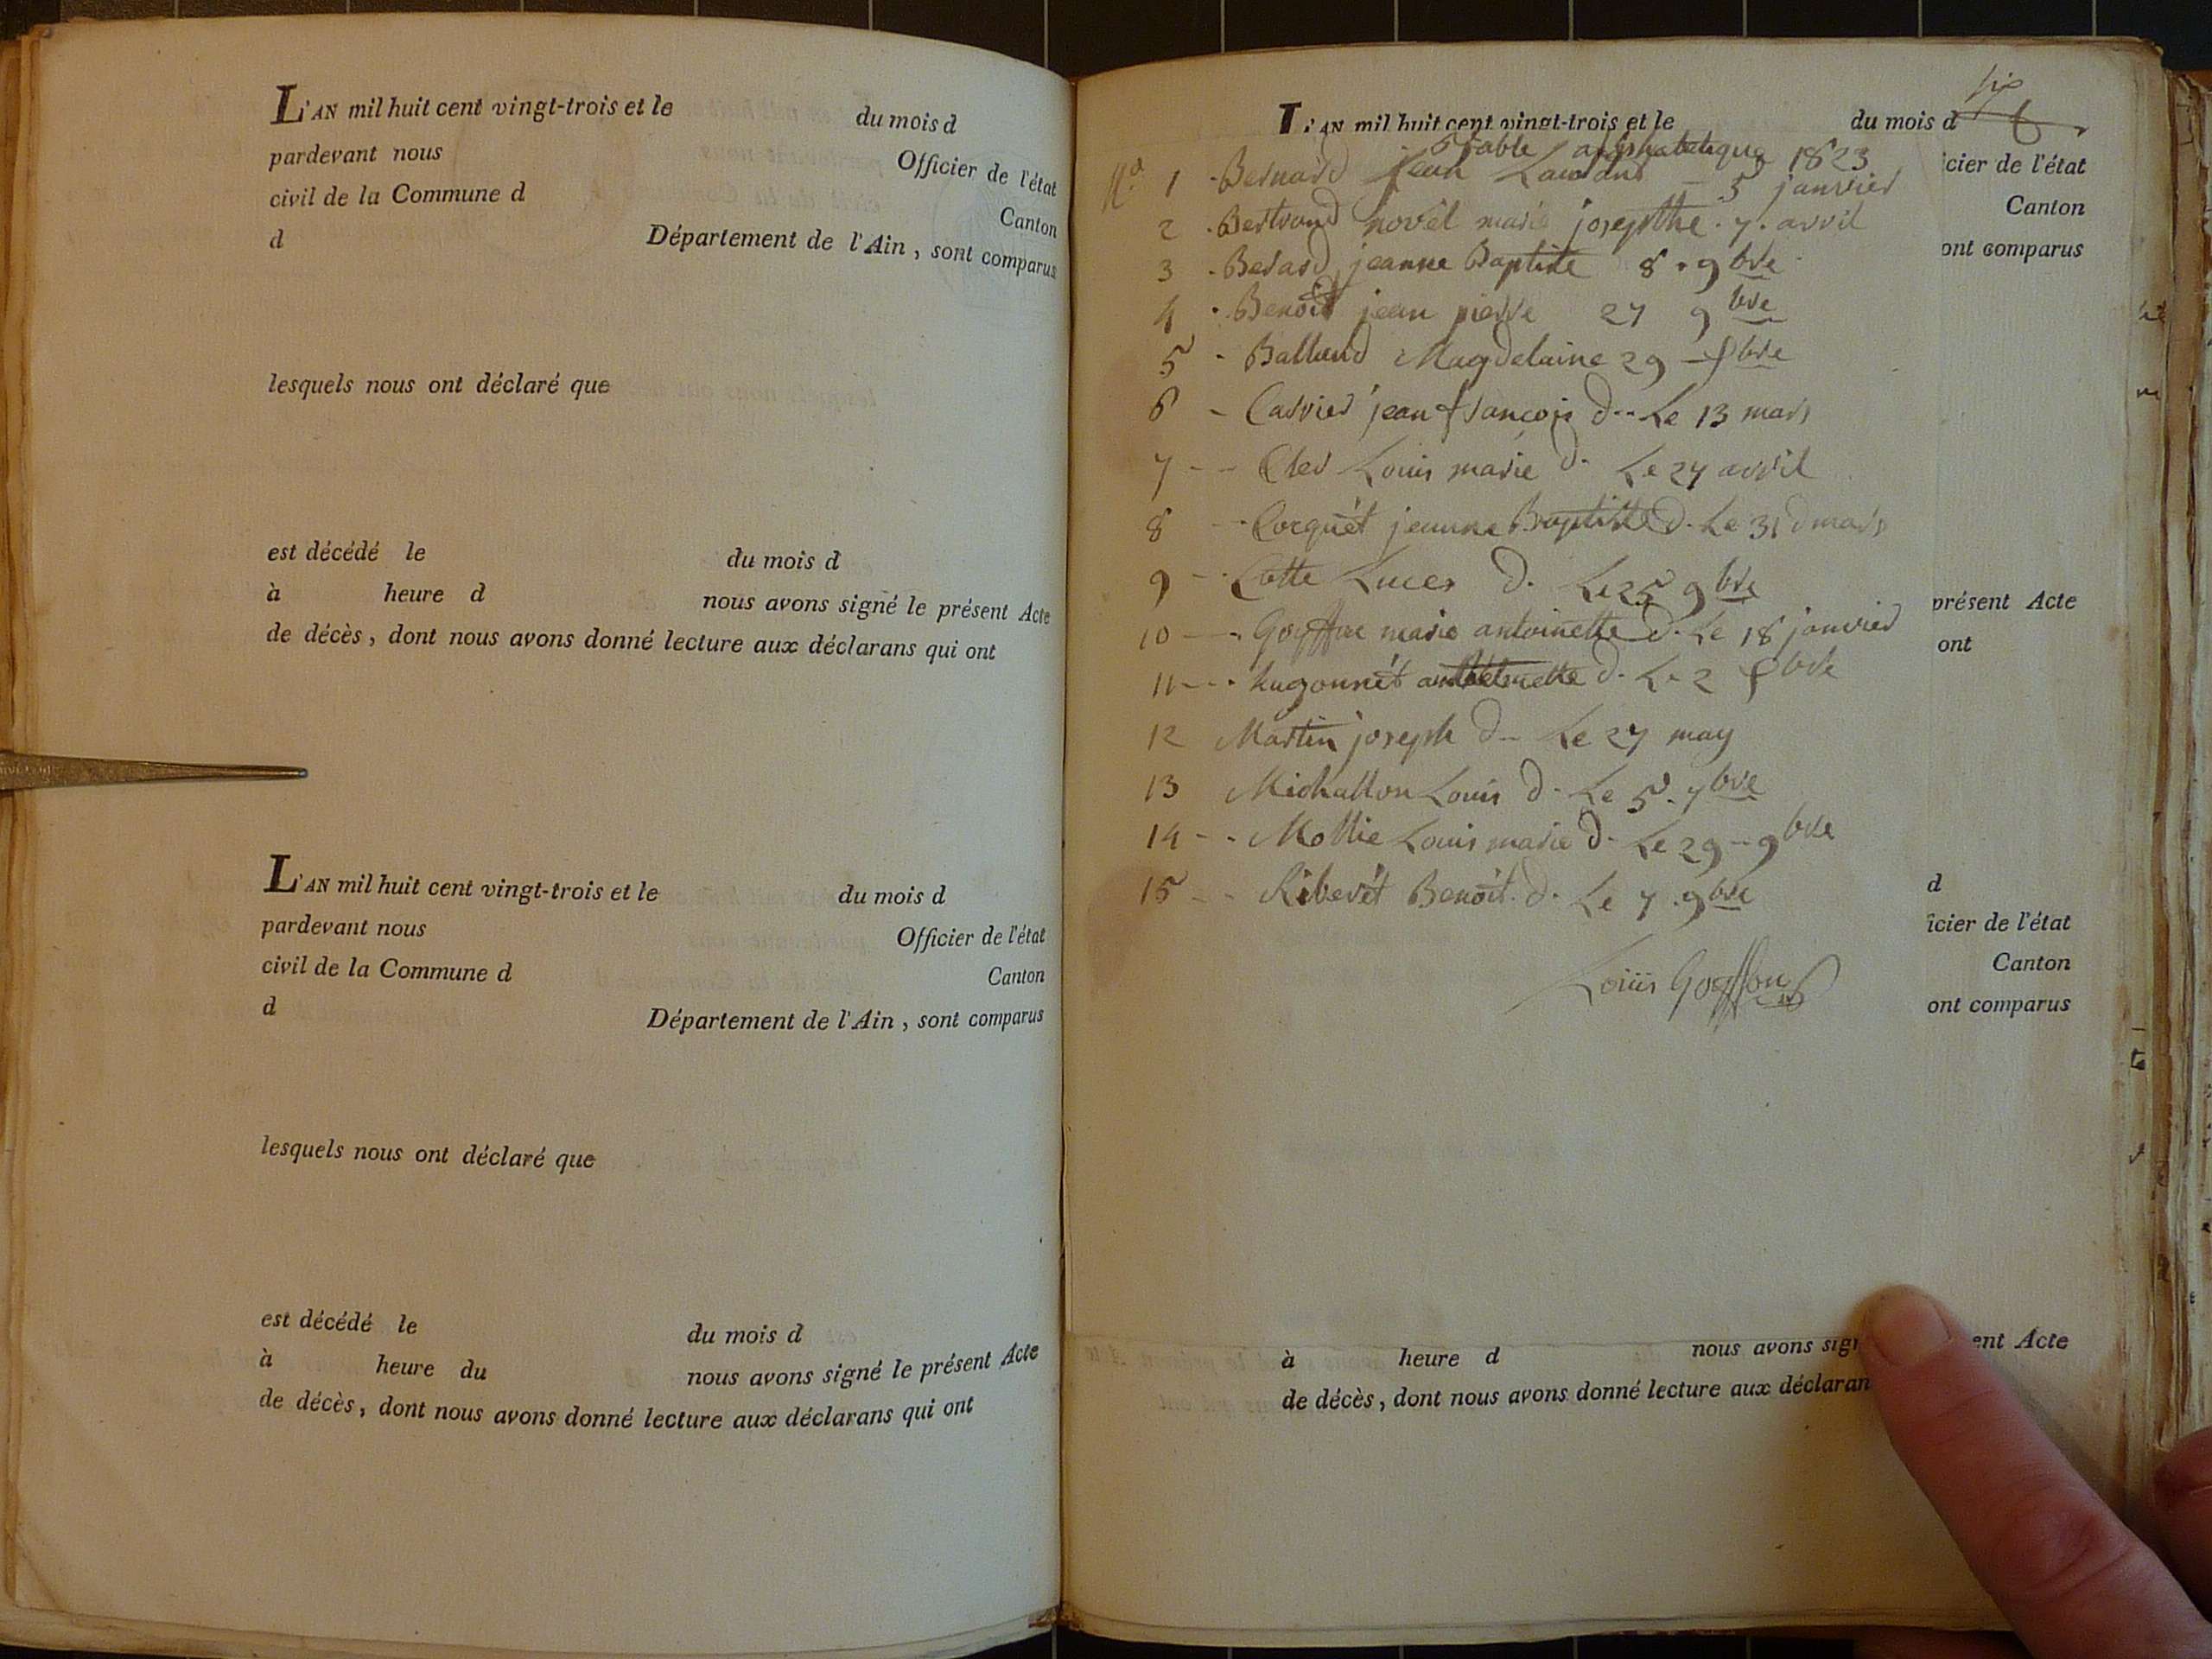 L'AN mil huit cent vingt-trois et le du mois d
pardevant nous Officier de l'état
civil de la Commune d Canton
d Département de l'Ain, sont comparus
lesquels nous ont déclaré que
est décédé le du mois d
à heure d nous avons signé le présent Acte
de décès, dont nous avons donné lecture aux déclarans qui ont
L'AN mil huit cent vingt-trois et le du mois d
pardevant nous Officier de l'état
civil de la Commune d Canton
d Département de l'Ain, sont comparus
lesquels nous ont déclaré que
est décédé le du mois d
à heure du nous avons signé le présent Acte
de décès, dont nous avons donné lecture aux déclarans qui ont
six
L'AN mil huit cent vingt-trois et le du mois d 6
Table alphabetique 1823
icier de l'état
No. 1 Bernard Jean 5 janvier
Canton
2 Bertrand novel marie josepthe 7. avril
ont comparus
3 Berard jeanne Baptiste 8. 9bre
4 Benoît jean pierre 27 9bre
5 Balland Magdelaine 29
6 Carrier jean françois d.. Le 13 mars
7 Cler Louis marie d. Le 27 avril
8 Cocquét jeanne Baptiste d. Le 31 d mars
9 Cotte Luces d. Le 25 9bre
présent Acte
10 marie antoinette d. Le 18 janvier
ont
11 hugonnét d. Le 2
12 Martin joseph d.. Le 27 may
13 Michallon Louis d. Le 5. 7bre
14 Mollie Louis marie d. Le 29 9bre
15 Riberét Benoît. d. Le 7. 9bre
d
icier de l'état
Louis Goyffon
Canton
ont comparus
à heure d nous avons sig ent Acte
de décès, dont nous avons donné lecture aux déclaran